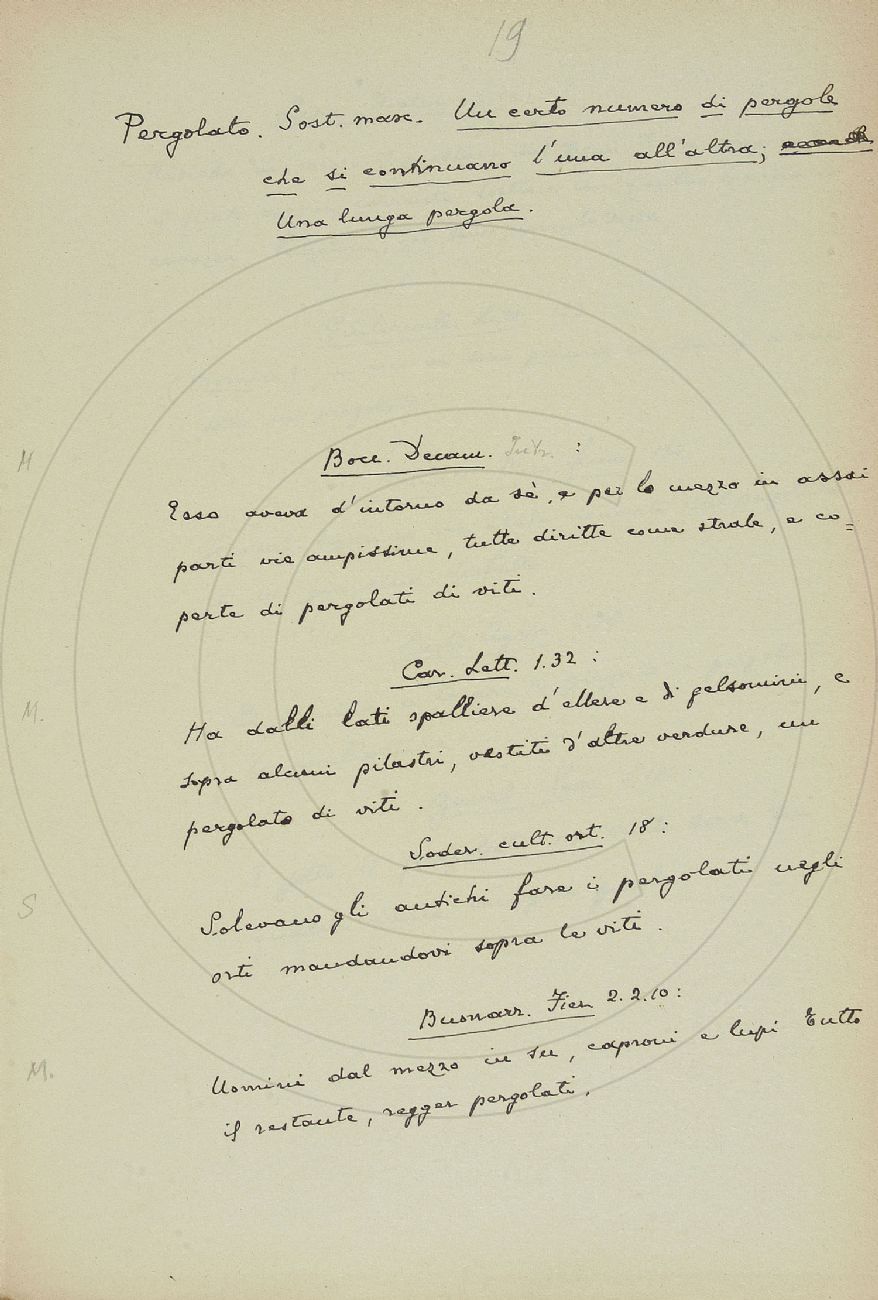 19
Pergolato. Sost. masc. Un certo numero di pergole
che si continuano l'una all'altra;
Una lunga pergola.
Bocc. Decam. Intr. :
M
Esso aveva d'intorno da sè, e per lo mezzo in assai
parti vie ampissime, tutte diritte come strale, e co=
perte di pergolati di viti.
Car. Lett. 1.32 :
M.
Ha dalli lati spalliere d'ellere e di gelsomini, e
sopra alcuni pilastri, vestiti d'altre verdure, un
pergolato di viti.
Soder. cult. ort. 18 :
S
Solevano gli antichi fare i pergolati negli
orti mandandovi sopra le viti.
Buonarr. Fier. 2.2.10 :
M.
Uomini dal mezzo in su, caproni e lupi Tutto
il restante, regger pergolati.